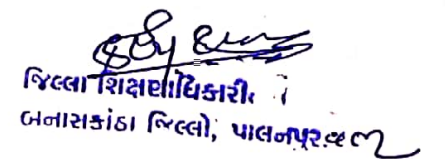 જિલ્લા શિક્ષણાધિકારી
બનાસકાંઠા જિલ્લો, પાલનપુર